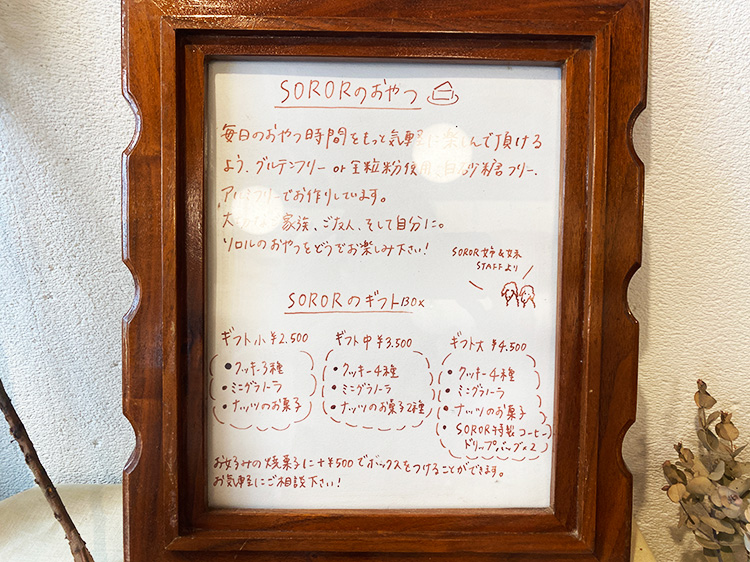 SORORのおやつ
毎日のおやつ時間をもっと気軽に楽しんで頂ける
よう、グルテンフリー or 全粒粉使用、白砂糖フリー、
アルミフリーでお作りしています。
家族、ご友人、そして自分に。
ソロルのおやつをどうぞお楽しみ下さい!
SOROR 姉&妹
STAFFより
SORORのギフトBOX
ギフト小 ¥2.500
• クッキー3種
• ミニグラノーラ
• ナッツのお菓子
ギフト中 ¥3.500
• クッキー4種
• ミニグラノーラ
• ナッツのお菓子2種
ギフト大 ¥4.500
• クッキー4種
• ミニグラノーラ
• ナッツのお菓子
• SOROR特製コーヒー
ドリップバッグ×2
お好みの焼菓子に+¥500でボックスをつけることができます。
お気軽にご相談下さい!